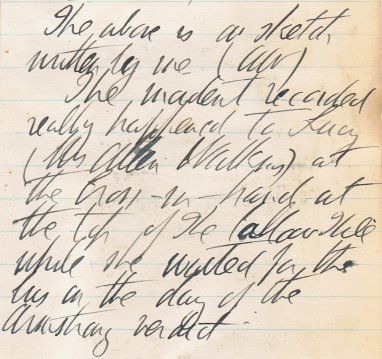 The above is a sketch
written by me (AW)
The incident recorded
really happened to Lucy
(Mrs Allen Watkins) at
the Cross-in-hand at
the top of the Callow Hill
while she waited for the
bus on the day of the
Armstrong verdict.